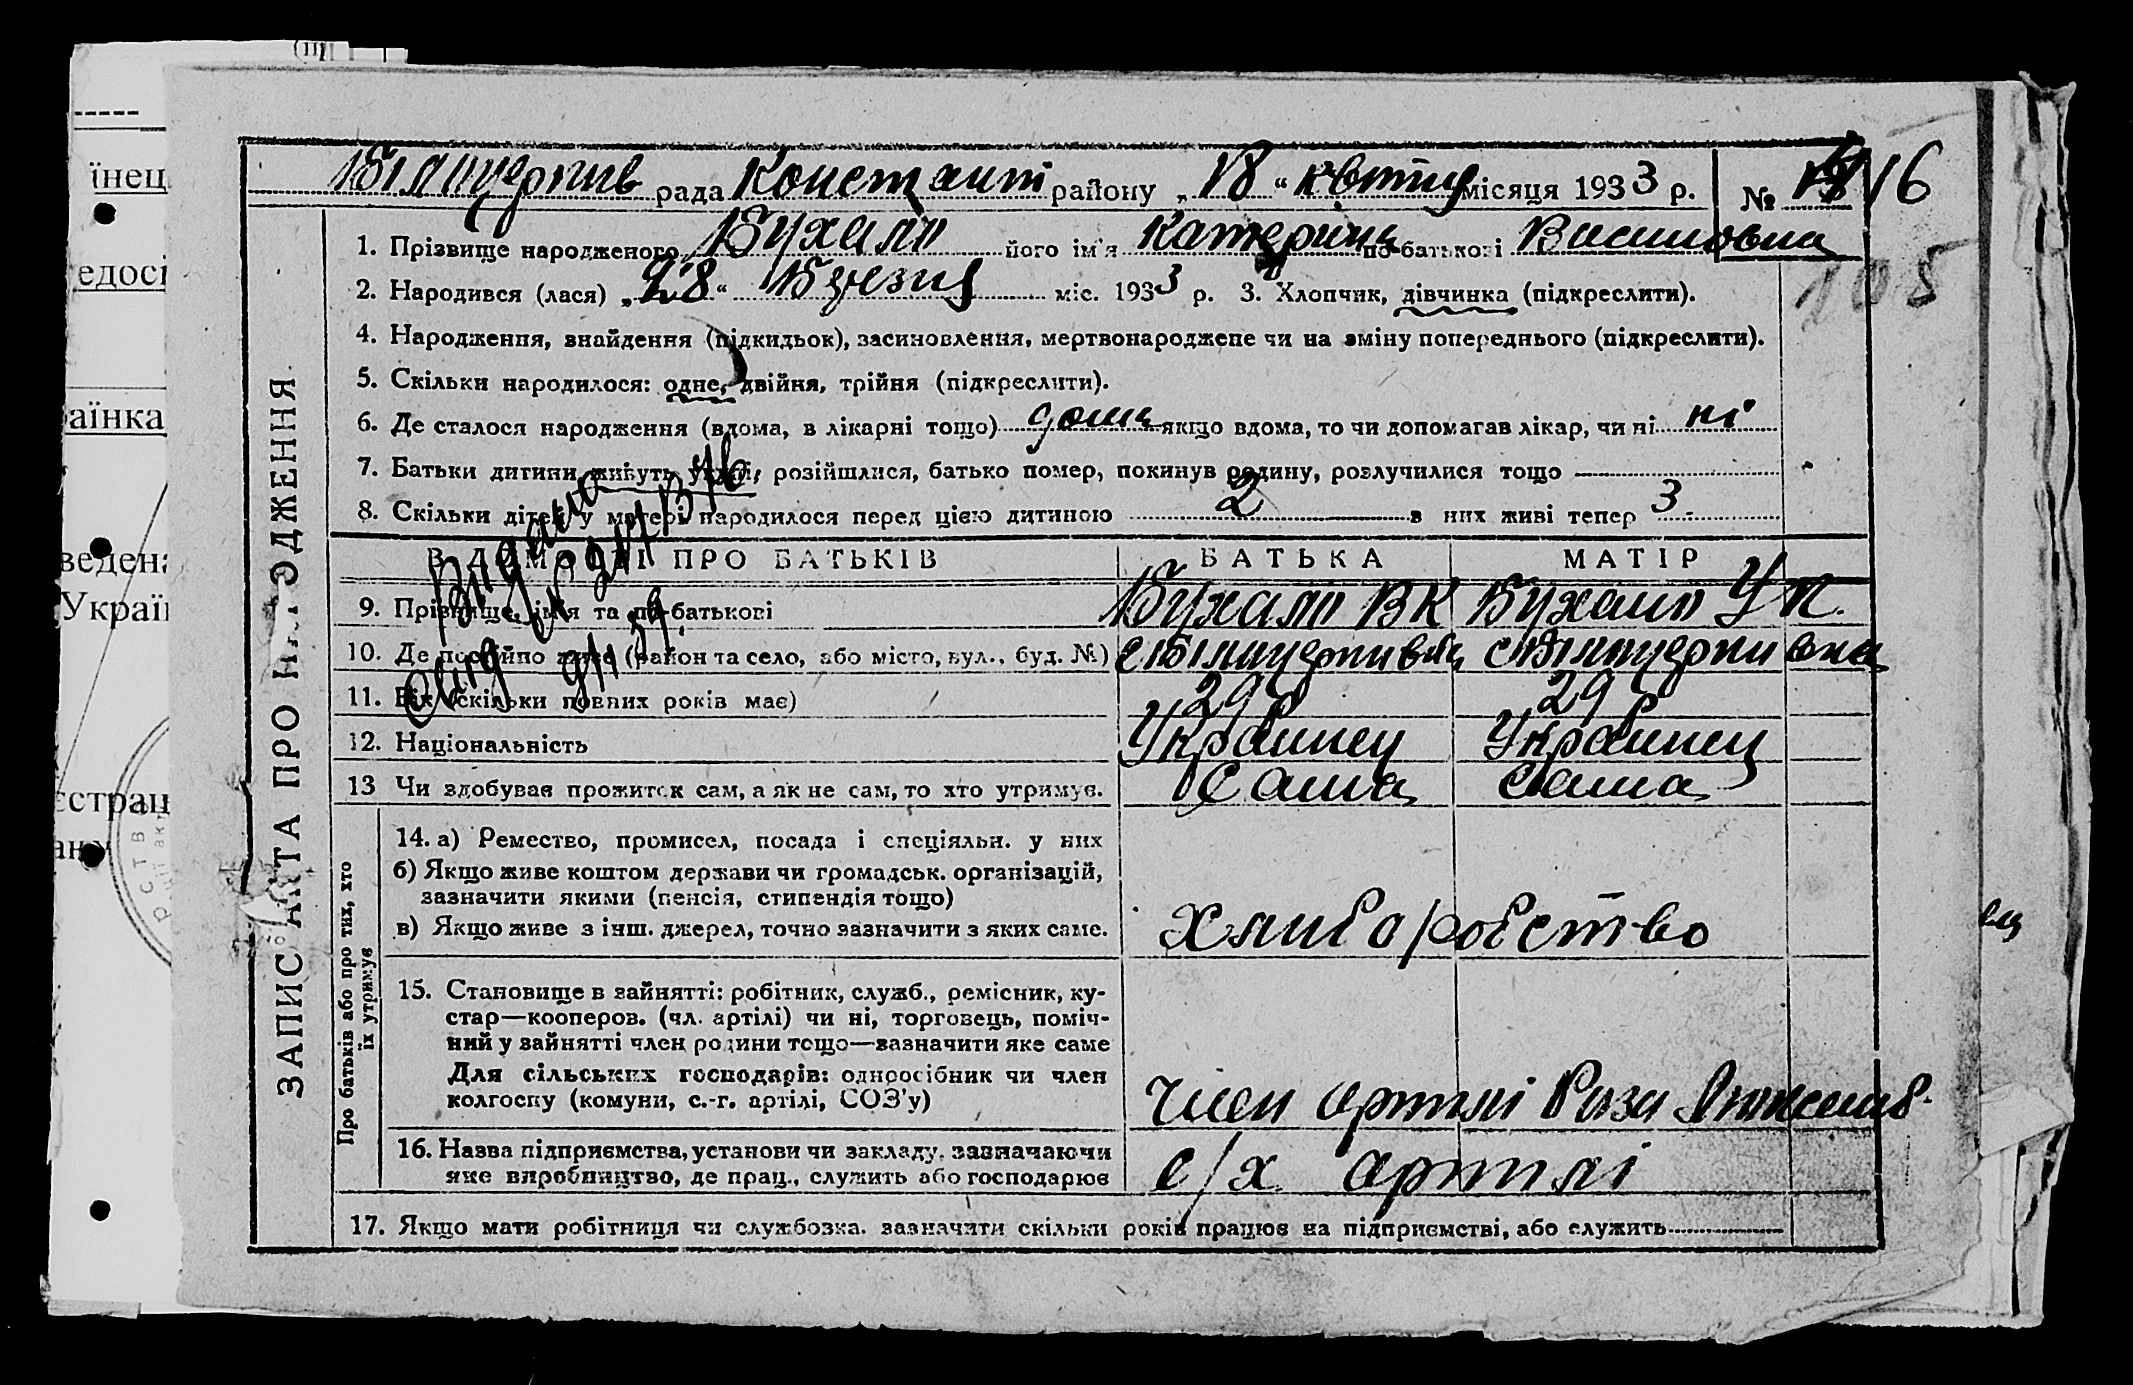 рада Констант району „18“ квітня місяця 1933 р. № 16
1. Прізвище народженого Бухало його ім'я Катерина по-батькові Василовна
105
2. Народився (лася) „28“ Березня міс. 1933 р. 3. Хлопчик, дівчинка (підкреслити).
4. Народження, знайдення (підкидьок), засиновлення, мертвонароджене чи на зміну попереднього (підкреслити).
5. Скільки народилося: одне, двійня, трійня (підкреслити).
6. Де сталося народження (вдома, в лікарні тощо) дома якщо вдома, то чи допомагав лікар, чи ні ні
7. Батьки дитини живуть укупі, розійшлися, батько помер, покинув родину, розлучилися тощо
8. Скільки дітей у матері народилося перед цією дитиною 2 з них живі тепер 3
ВІДОМОСТІ ПРО БАТЬКІВ БАТЬКА МАТІР
9. Прізвище, ім'я та по-батькові Бухало В К Бухало У П.
10. Де постійно живе (район та село, або місто, вул., буд. №)
11. Вік (скільки повних років має) 29 р 29 р
12. Національність Украинец Украинец
13 Чи здобував прожиток сам, а як не сам, то хто утримує. Сама Сама
14. а) Ремество, промисел, посада і спеціяльн. у них
б) Якщо живе коштом держави чи громадськ. організацій,
зазначити якими (пенсія, стипендія тощо)
в) Якщо живе з інш. джерел, точно зазначити з яких саме. Хлиборобство
15. Становище в зайнятті: робітник, служб., ремісник, ку-
стар—кооперов. (чл. артілі) чи ні, торговець, поміч-
ний у зайнятті член родини тощо—зазначити яке саме
Для сільських господарів: одноосібник чи член
колгоспу (комуни, с.-г. артілі, СОЗ'у) член артілі Роза Люксемб.
16. Назва підприємства, установи чи закладу, зазначаючи
яке виробництво, де прац., служить або господарює с/х артілі
17. Якщо мати робітниця чи службовка. зазначити скільки років працює на підприємстві, або служить
ЗАПИС АКТА ПРО НАРОДЖЕННЯ
Про батьків або про тих, хто
їх утримує
Видана